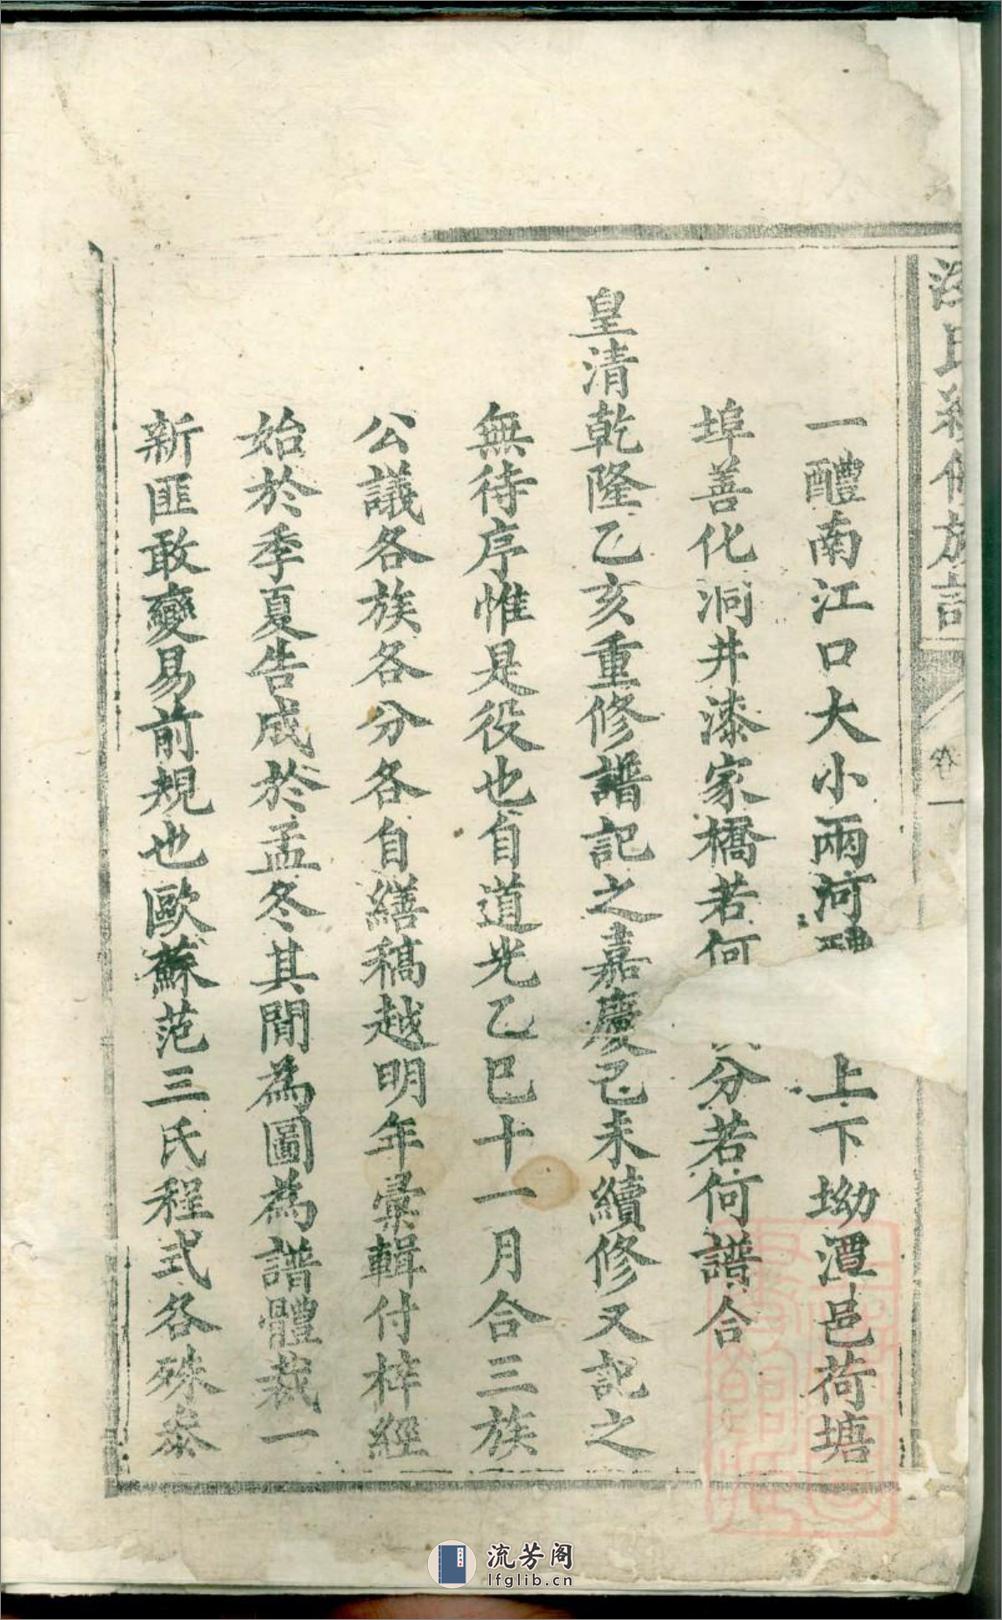 氏續修族
卷一
一醴南江口大小兩河 上下坳潭邑荷塘
埠善化洞井漆家橋若何 分若何譜合
皇清乾隆乙亥重修譜記之嘉慶己未續修又記之
無待序惟是役也自道光乙巳十一月合三族
公議各族各分各自繕稿越明年彙輯付梓經
始於季夏告成於孟冬其間為圖為譜體裁一
新匪敢變易前規也歐蘇范三氏程式各殊叅
流芳阁
lfglib.cn